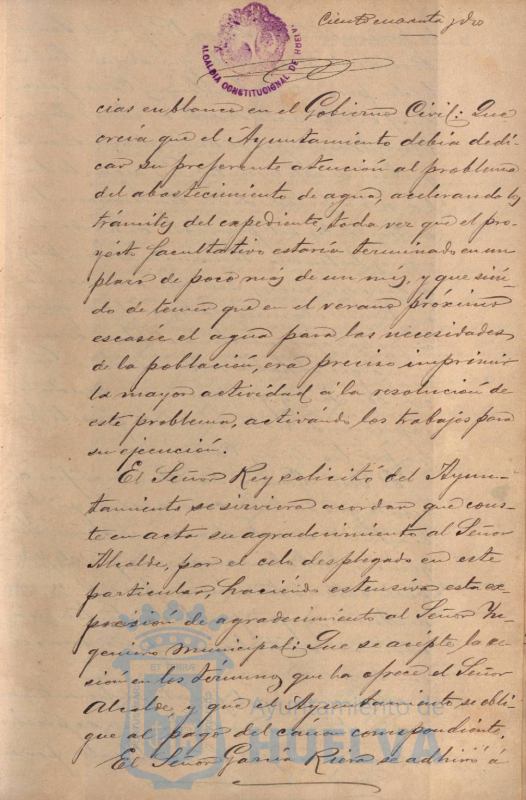 Ciento cuarenta y dos
ALCALDÍA CONSTITUCIONAL DE HUELVA
cias en blanco en el Gobierno Civil: Que
creía que el Ayuntamiento debia dedi-
car su preferente atención al problema
del abastecimiento de agua, acelerando los
trámites del expediente, toda vez que el pro-
yecto facultativo estaría terminado en un
plazo de poco más de un més, y que sien-
do de temer que en el verano próximo
escasée el agua para las necesidades
de la población, era preciso imprimir
la mayor actividad á la resolución de
este problema, activándo los trabajos para
su ejecución.
El Señor Rey solicitó del Ayun-
tamiento se sirviera acordar que cons-
te en acta su agradecimiento al Señor
Alcalde, por el celo desplegado en este
particular, haciéndo extensiva esta ex-
presión de agradecimiento al Señor Yn-
geniero Municipal: Que se acépte la ce-
sión en los términos que ha ofrece el Señor
Alcalde, y que el Ayuntamiento se obli-
gue al pago del cánon correspondiente.
El Señor García Riera se adhirió á
Ayuntamiento de
HUELVA